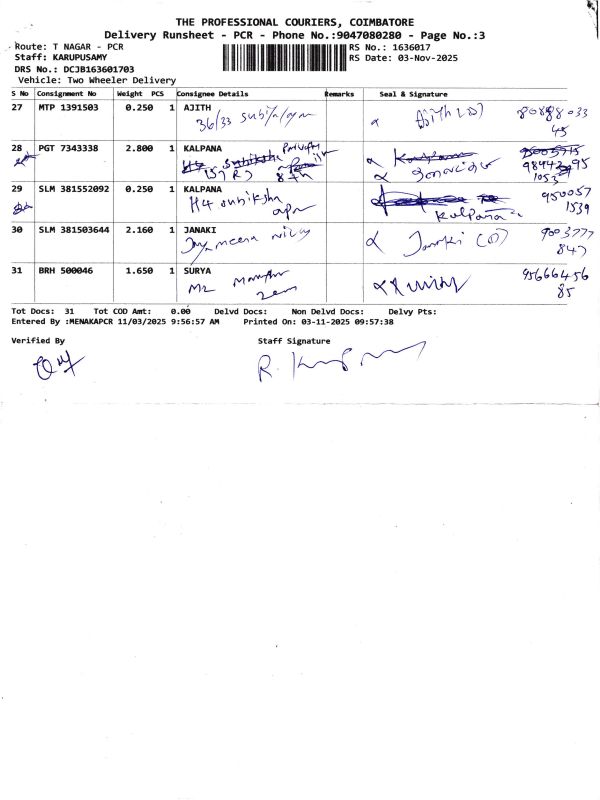 THE PROFESSIONAL COURIERS, COIMBATORE
Delivery Runsheet - PCR - Phone No.:9047080280 - Page No.:3
Route: T NAGAR - PCR RS No.: 1636017
Staff: KARUPUSAMY RS Date: 03-Nov-2025
DRS No.: DCJB163601703
Vehicle: Two Wheeler Delivery
S No Consignment No Weight PCS Consignee Details Remarks Seal & Signature
27 MTP 1391503 0.250 1 AJITH
36/33 Ajith (O) 80888033
45
28 PGT 7343338 2.800 1 KALPANA
98443 95
1053
29 SLM 381552092 0.250 1 KALPANA 950057
H4 subiksha Kalpana 1539
apr
30 SLM 381503644 2.160 1 JANAKI Janki (O) 9003777
Jaya meena 847
31 BRH 500046 1.650 1 SURYA 95666456
85
Tot Docs: 31 Tot COD Amt: 0.00 Delvd Docs: Non Delvd Docs: Delvy Pts:
Entered By :MENAKAPCR 11/03/2025 9:56:57 AM Printed On: 03-11-2025 09:57:38
Verified By Staff Signature